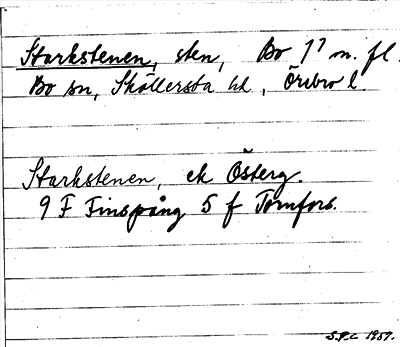 Starkstenen, sten, Bo 1⁷ m. fl.
Bo sn, Sköllersta hd, Örebro l.
Starkstenen, ek Österg.
9 F Finspång 5 f Tornfors.
S.P.L 1959.